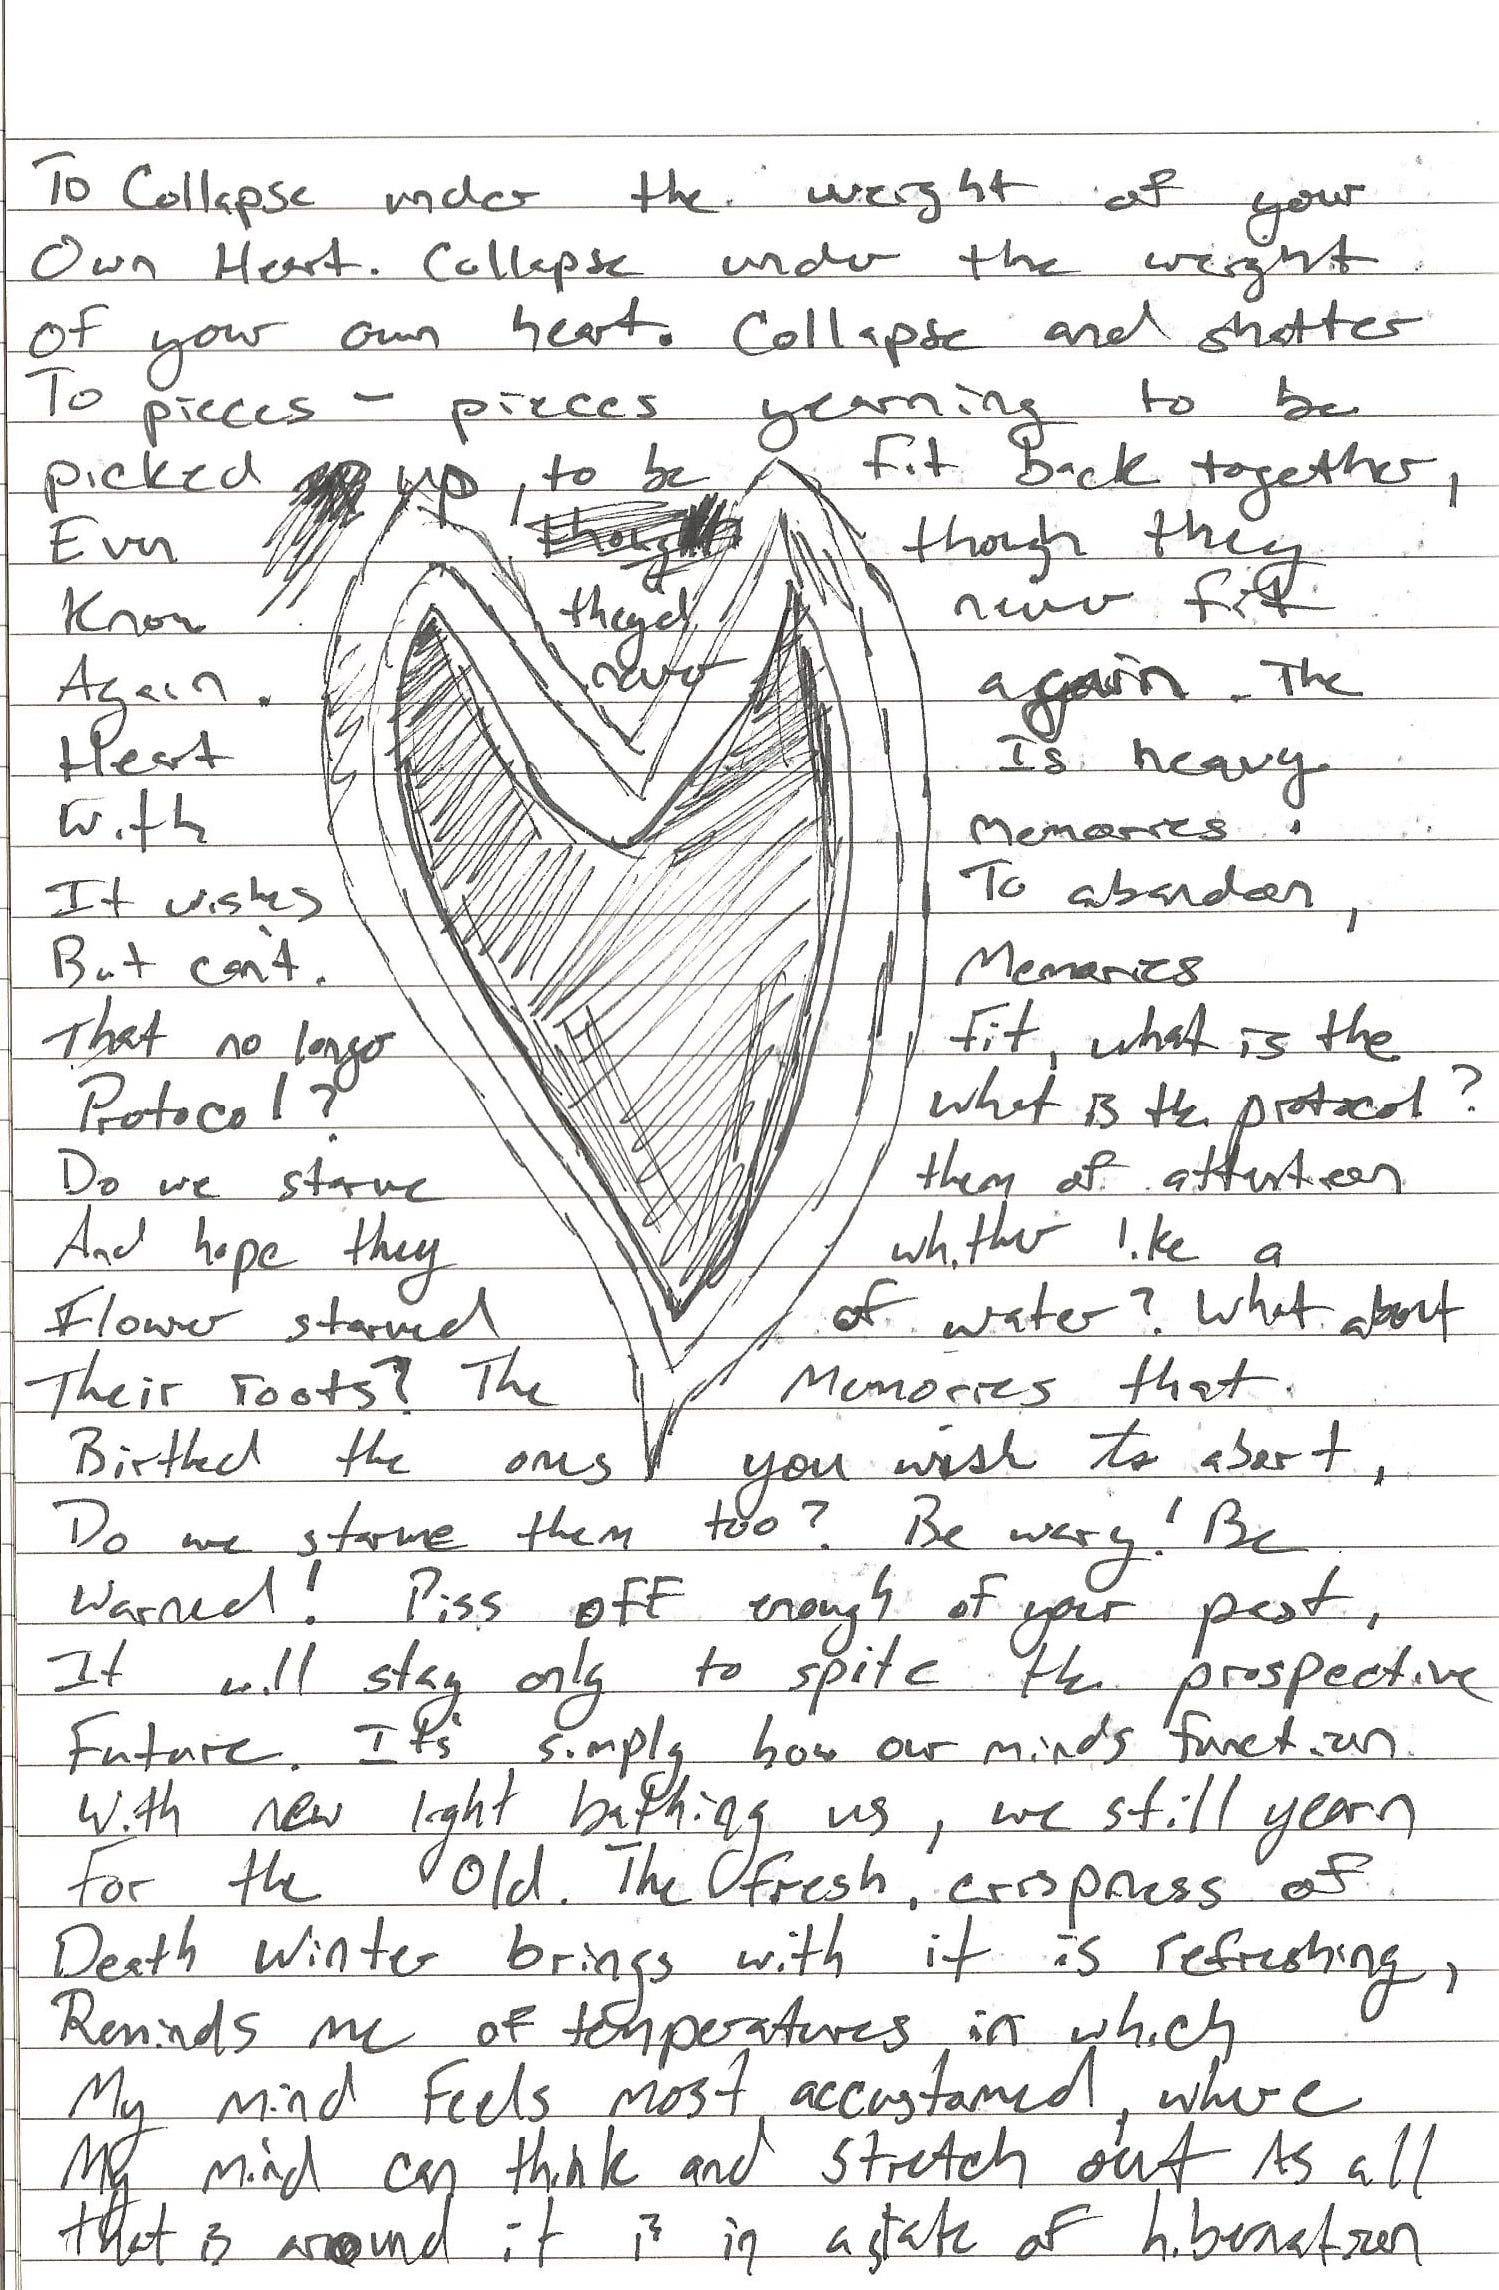 To Collapse under the weight of your
Own Heart. Collapse under the weight
of your own heart. Collapse and shatter
To pieces - pieces yearning to be
picked up, to be fit back together,
Even though though they
Know they'd never fit
Again. never again. The
Heart Is heavy
With Memories.
It wishes To abandon,
But can't. Memories
That no longer fit, what is the
Protocol? what is the protocol?
Do we starve them of attention
And hope they whither like a
Flower starved of water? What about
Their roots? The Memories that
Birthed the ones you wish to abort,
Do we starve them too? Be wary! Be
Warned! Piss off enough of your past,
It will stay only to spite the prospective
Future. It's simply how our minds function.
With new light bathing us, we still yearn
For the Old. The fresh, crispness of
Death Winter brings with it is refreshing,
Reminds me of temperatures in which
My mind feels most accustomed, where
My mind can think and stretch out As all
that is around it is in a state of hibernation